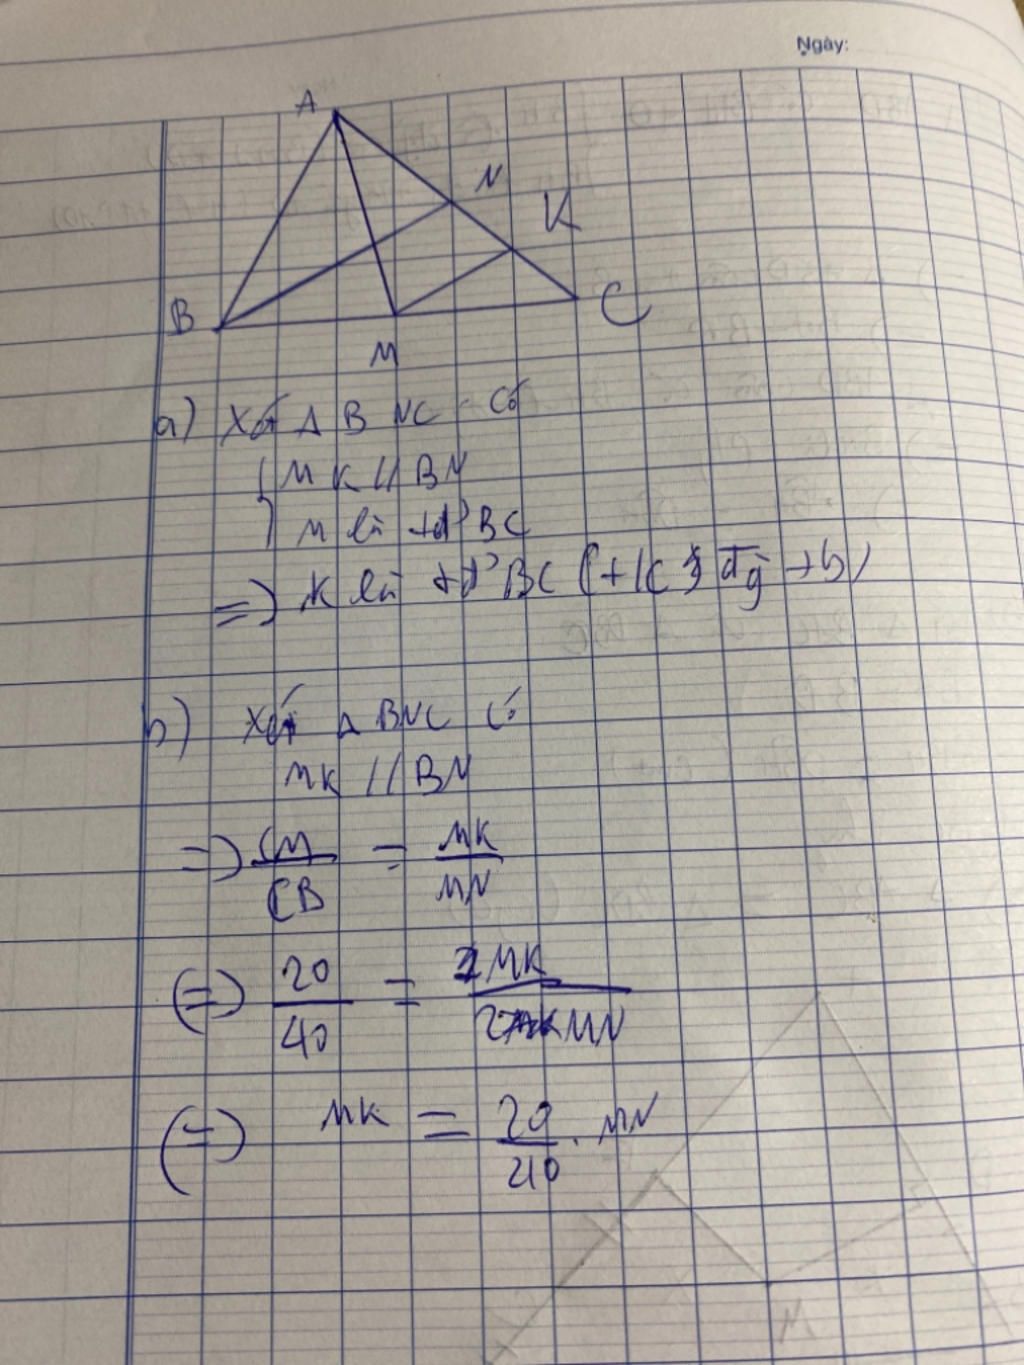 Ngày:
A
N
K
B
C
M
a) Xét Δ BNC có
MK // BN
M là tđ BC
=> K là tđ BC (
b) Xét Δ BNC có
MK // BN
=> CM/CB = MK/MN
(=) 20/40 = MK/MN
(=) MK = 20/40 . MN